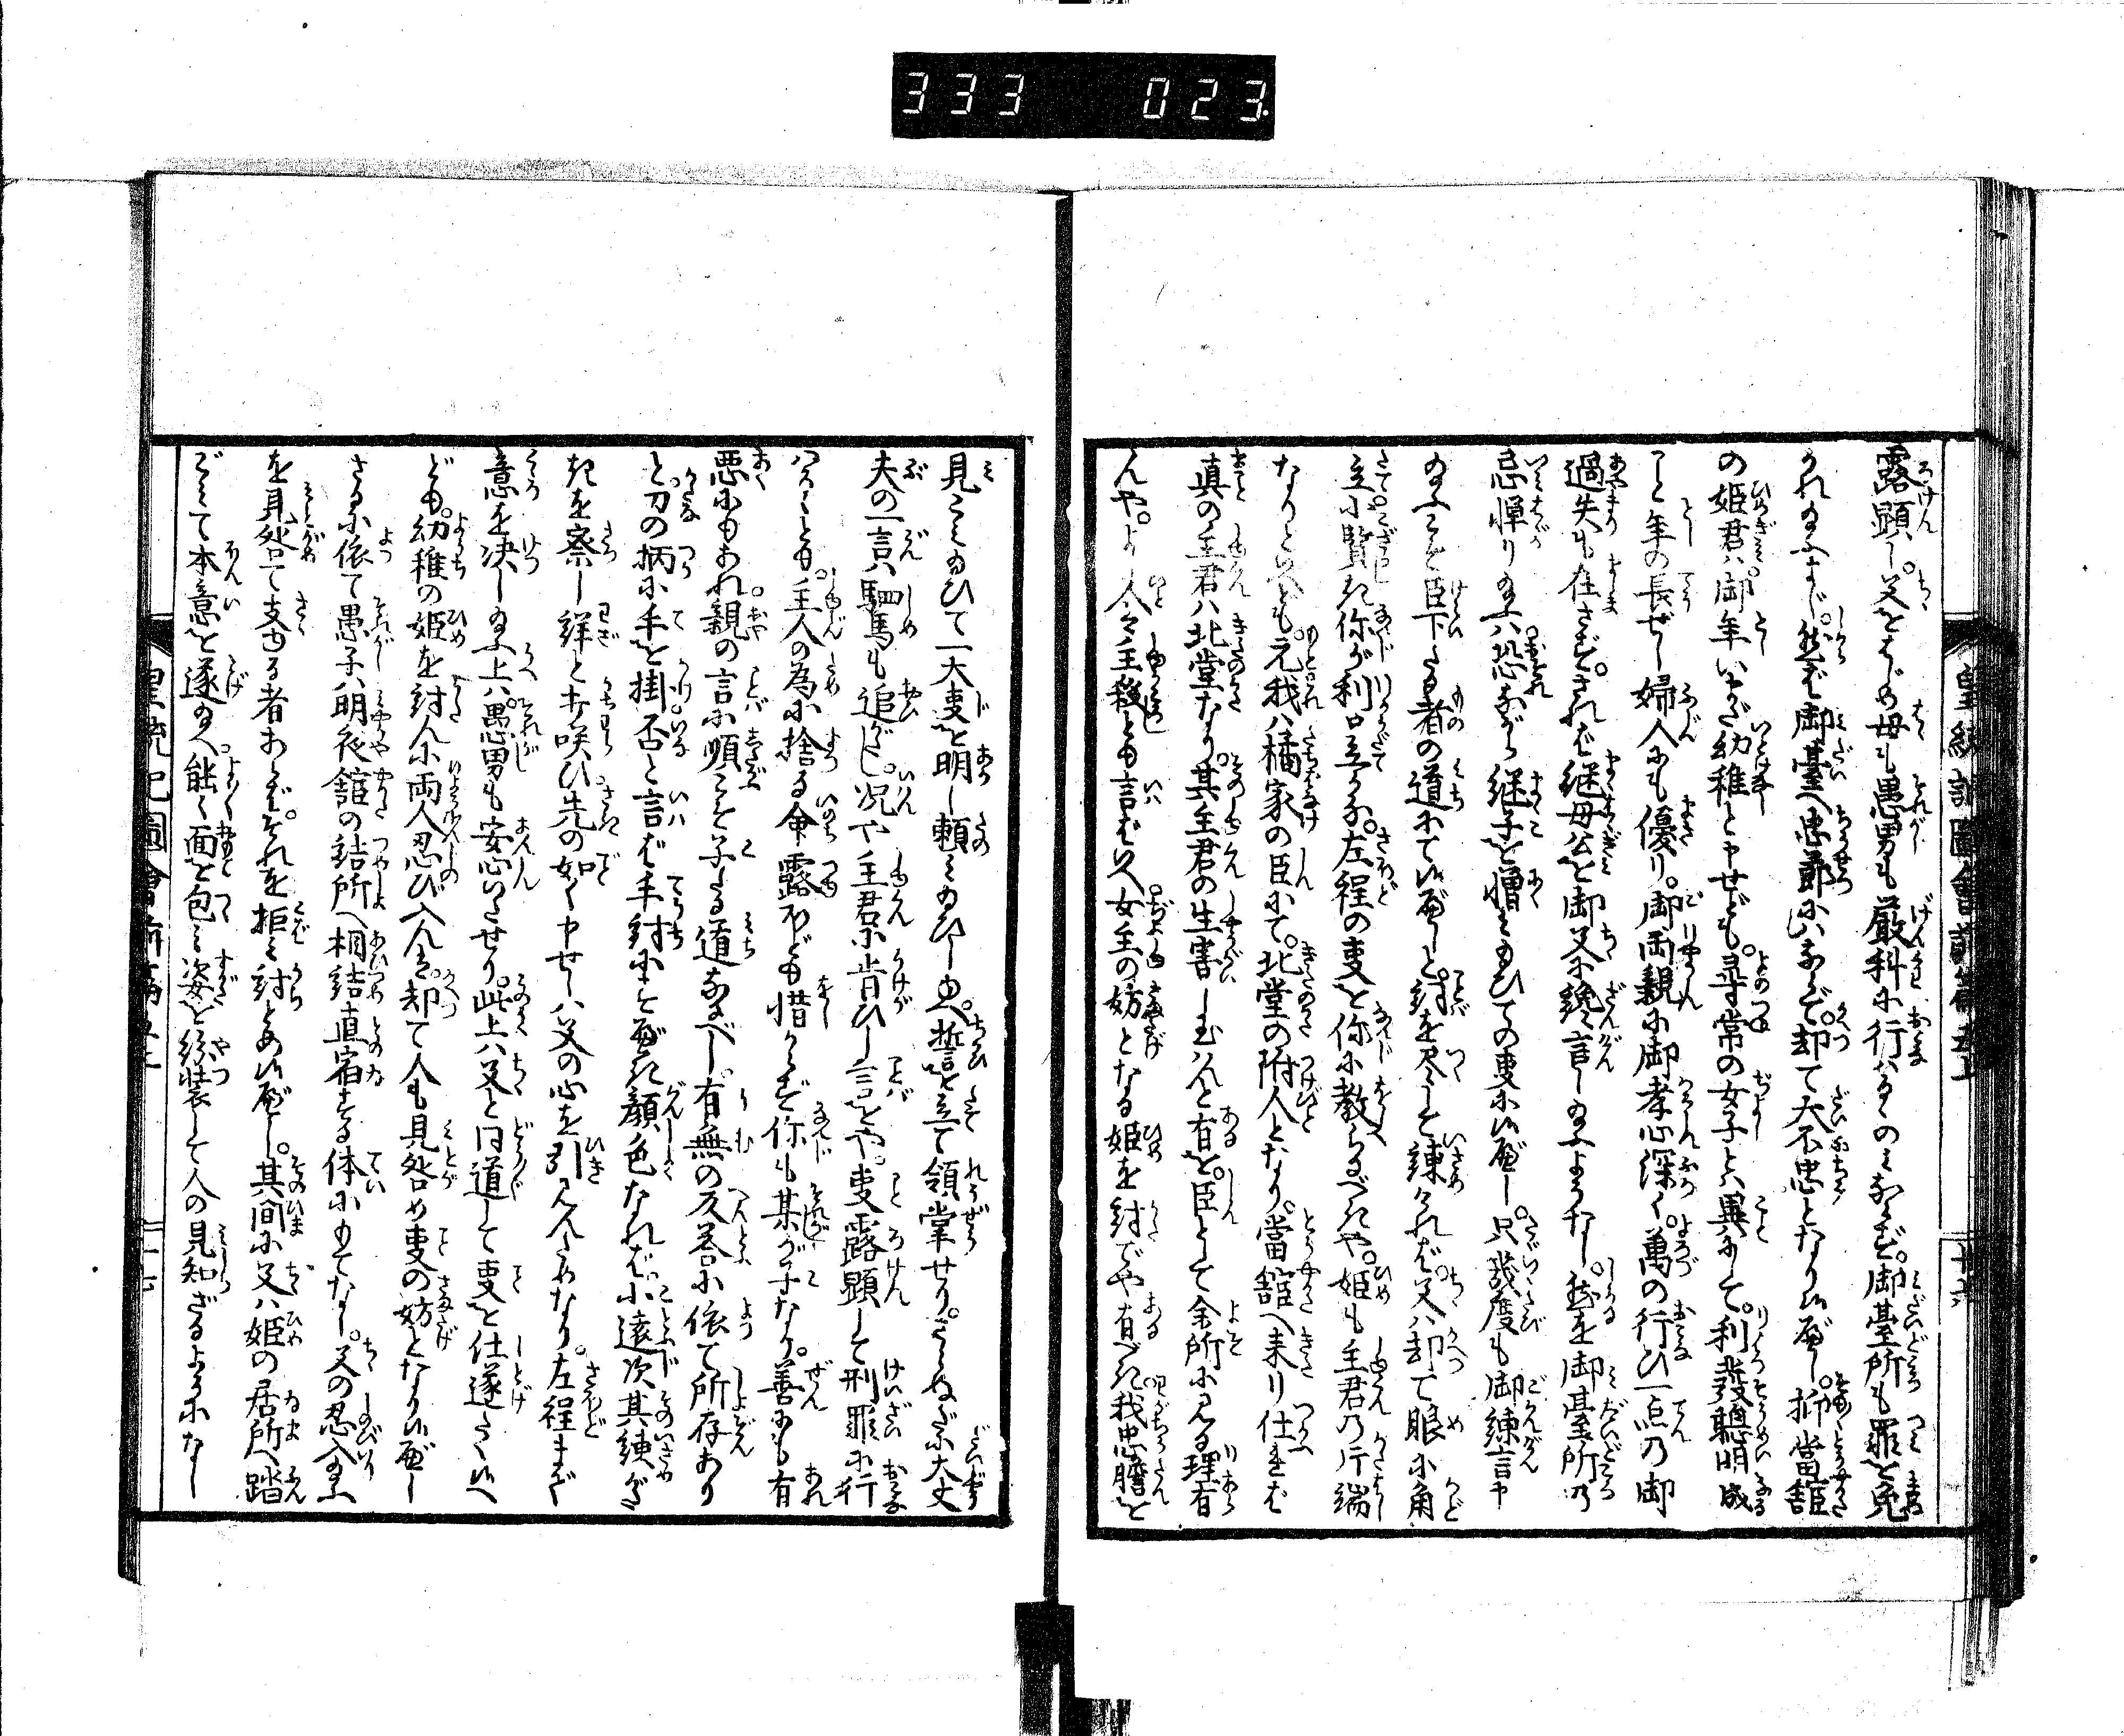 333 023
露顕し。父をはじめ母も愚男も厳科に行はるのみならず。御臺所も罪を免
かれ給ふまじ。然ば御臺へ忠節にハあらで。却て大不忠となり候べし。抑當舘
の姫君ハ。御年いまだ幼稚と申せども。尋常の女子とハ異にして。利發聡明成
こと年の長ぜし婦人にも優り。御両親に御孝心深く。萬の行ひ一点の御
過失も在さず。されば継母公を御父に讒言し給ふようなし。然を御臺所の
忌憚り給ふハ恐ながら継子を憎み給ひての事に候べし。只幾度も御練言申
給ふこそ臣下たる者の道にて候べしと。詞を尽して諫ければ。父ハ却て眼に角
立。小賢き你が利口立かな。左程の事を你に教らるべきや。姫も主君の片端
なりといへども。元我ハ橘家の臣にて。北堂の附人となり。當舘へ来り仕ふれば
真の主君ハ北堂なり。其主君の生害し玉はんと有を。臣として余所に見る理有
んや。よし人々主殺とも言ばいへ。女主の妨となる姫を討でや有べき。我忠膽を
見こみ給ひて一大事を明し頼み給ひしゆへ。誓を立て領掌せり。さらぬだに大丈
夫の一言ハ駟馬も追がたし。况や主君に肯ひし言をや。事露顕して刑罪に行
はるゝとも。主人の為に捨る命露ほども惜からず。你も某が子なり。善にも有
悪にもあれ親の言に順こそ子たる道なるべし。有無の返答に依て所存あり
と。刀の柄に手を掛。否と言ば手討にすべき顔色なれば。小遠次其練がた
きを察し。詳と打咲ひ。先の如く申せしハ父の心を引見んためなり。左程まで
意を决し給ふ上ハ。愚男も安心いたせり。此上ハ父と同道して事を仕遂たく候へ
ども。幼稚の姫を討んに両人忍び入んハ。却て人も見咎め事の妨となり候べし
さるに依て愚子ハ明夜舘の詰所へ相詰直宿する体にもてなし。父の忍入給ふ
を見咎て支ゆる者あらば。それを拒み討とめ候べし。其間に父ハ姫の居所へ踏
ごみて本意を遂給へ。能々面を包み姿を絵装して人の見知ざるようになし